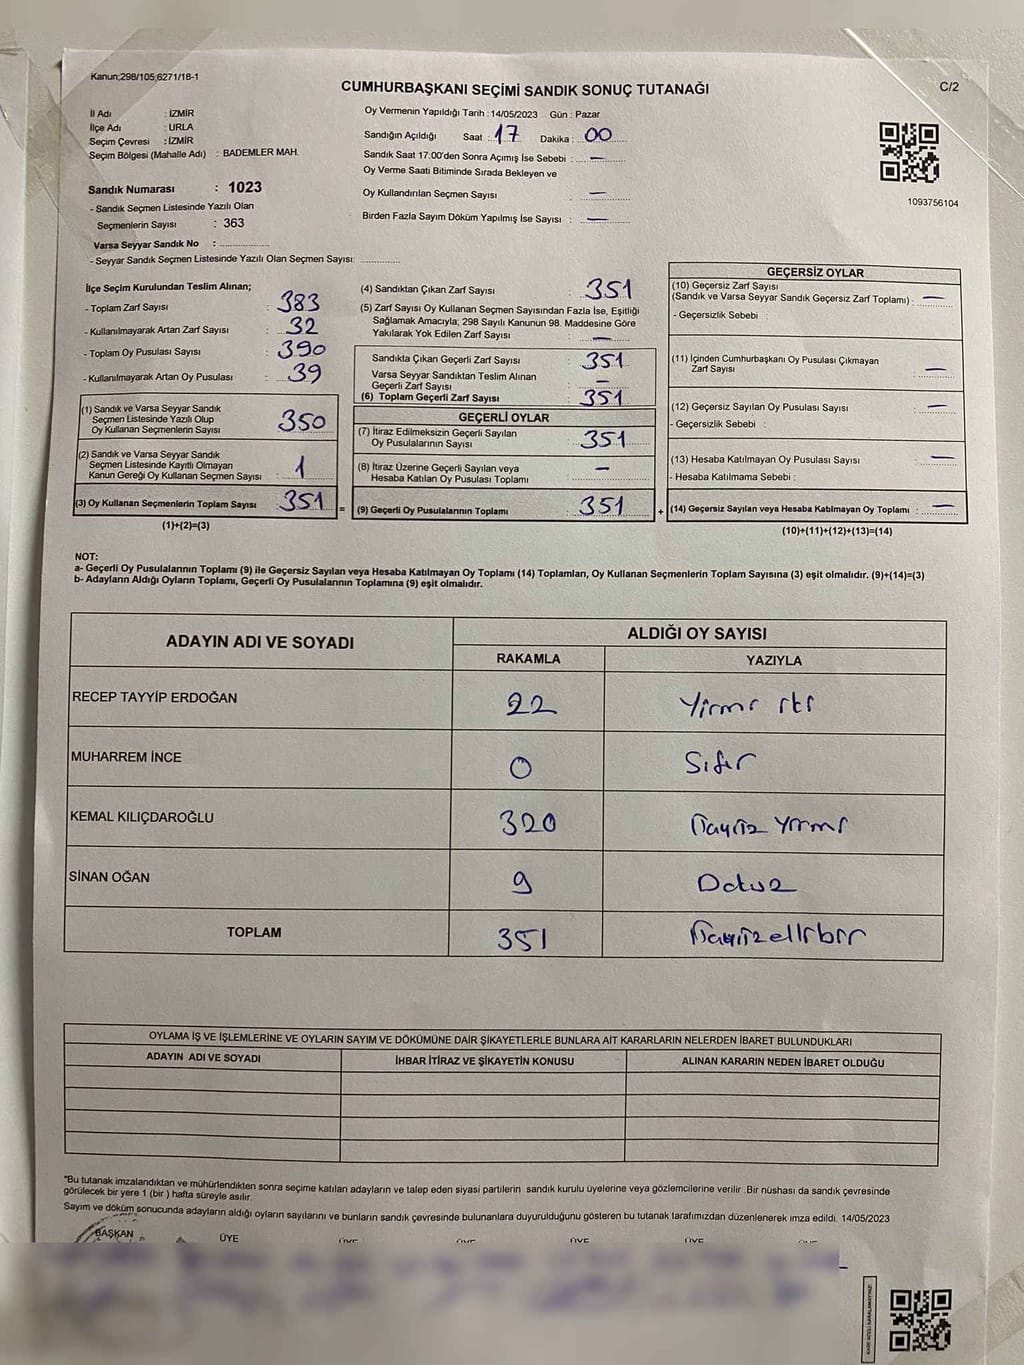 Kanun;298/105;6271/18-1
CUMHURBAŞKANI SEÇİMİ SANDIK SONUÇ TUTANAĞI
C/2
İl Adı : İZMİR
İlçe Adı : URLA
Seçim Çevresi : İZMİR
Seçim Bölgesi (Mahalle Adı) : BADEMLER MAH.
Sandık Numarası : 1023
- Sandık Seçmen Listesinde Yazılı Olan
Seçmenlerin Sayısı : 363
Varsa Seyyar Sandık No : ....................
- Seyyar Sandık Seçmen Listesinde Yazılı Olan Seçmen Sayısı: ............
Oy Vermenin Yapıldığı Tarih : 14/05/2023 Gün : Pazar
Sandığın Açıldığı Saat : 17 Dakika : 00
Sandık Saat 17:00'den Sonra Açımış İse Sebebi : —
Oy Verme Saati Bitiminde Sırada Bekleyen ve
Oy Kullandırılan Seçmen Sayısı : —
Birden Fazla Sayım Döküm Yapılmış İse Sayısı : —
1093756104
İlçe Seçim Kurulundan Teslim Alınan;
- Toplam Zarf Sayısı : 383
- Kullanılmayarak Artan Zarf Sayısı : 32
- Toplam Oy Pusulası Sayısı : 390
- Kullanılmayarak Artan Oy Pusulası : 39
(1) Sandık ve Varsa Seyyar Sandık
Seçmen Listesinde Yazılı Olup
Oy Kullanan Seçmenlerin Sayısı 350
(2) Sandık ve Varsa Seyyar Sandık
Seçmen Listesinde Kayıtlı Olmayan
Kanun Gereği Oy Kullanan Seçmen Sayısı : 1
(3) Oy Kullanan Seçmenlerin Toplam Sayısı : 351 =
(1)+(2)=(3)
(4) Sandıktan Çıkan Zarf Sayısı : 351
(5) Zarf Sayısı Oy Kullanan Seçmen Sayısından Fazla İse, Eşitliği
Sağlamak Amacıyla; 298 Sayılı Kanunun 98. Maddesine Göre
Yakılarak Yok Edilen Zarf Sayısı : —
Sandıkta Çıkan Geçerli Zarf Sayısı : 351
Varsa Seyyar Sandıktan Teslim Alınan
Geçerli Zarf Sayısı : —
(6) Toplam Geçerli Zarf Sayısı : 351
GEÇERLİ OYLAR
(7) İtiraz Edilmeksizin Geçerli Sayılan
Oy Pusulalarının Sayısı : 351
(8) İtiraz Üzerine Geçerli Sayılan veya
Hesaba Katılan Oy Pusulası Toplamı : —
(9) Geçerli Oy Pusulalarının Toplamı : 351 +
GEÇERSİZ OYLAR
(10) Geçersiz Zarf Sayısı
(Sandık ve Varsa Seyyar Sandık Geçersiz Zarf Toplamı) : —
- Geçersizlik Sebebi :
(11) İçinden Cumhurbaşkanı Oy Pusulası Çıkmayan
Zarf Sayısı : —
(12) Geçersiz Sayılan Oy Pusulası Sayısı : —
- Geçersizlik Sebebi :
(13) Hesaba Katılmayan Oy Pusulası Sayısı : —
- Hesaba Katılmama Sebebi :
(14) Geçersiz Sayılan veya Hesaba Katılmayan Oy Toplamı : —
(10)+(11)+(12)+(13)=(14)
NOT:
a- Geçerli Oy Pusulalarının Toplamı (9) ile Geçersiz Sayılan veya Hesaba Katılmayan Oy Toplamı (14) Toplamları, Oy Kullanan Seçmenlerin Toplam Sayısına (3) eşit olmalıdır. (9)+(14)=(3)
b- Adayların Aldığı Oyların Toplamı, Geçerli Oy Pusulalarının Toplamına (9) eşit olmalıdır.
ADAYIN ADI VE SOYADI
ALDIĞI OY SAYISI
RAKAMLA YAZIYLA
RECEP TAYYİP ERDOĞAN 22 Yirmi iki
MUHARREM İNCE 0 Sıfır
KEMAL KILIÇDAROĞLU 320 Üçyüz Yirmi
SİNAN OĞAN 9 Dokuz
TOPLAM 351 Üçyüzellibir
OYLAMA İŞ VE İŞLEMLERİNE VE OYLARIN SAYIM VE DÖKÜMÜNE DAİR ŞİKAYETLERLE BUNLARA AİT KARARLARIN NELERDEN İBARET BULUNDUKLARI
ADAYIN ADI VE SOYADI İHBAR İTİRAZ VE ŞİKAYETİN KONUSU ALINAN KARARIN NEDEN İBARET OLDUĞU
"Bu tutanak imzalandıktan ve mühürlendikten sonra seçime katılan adayların ve talep eden siyasi partilerin sandık kurulu üyelerine veya gözlemcilerine verilir .Bir nüshası da sandık çevresinde
görülecek bir yere 1 (bir ) hafta süreyle asılır.
Sayım ve döküm sonucunda adayların aldığı oyların sayılarını ve bunların sandık çevresinde bulunanlara duyurulduğunu gösteren bu tutanak tarafımızdan düzenlenerek imza edildi. 14/05/2023
BAŞKAN ÜYE ÜYE ÜYE ÜYE ÜYE